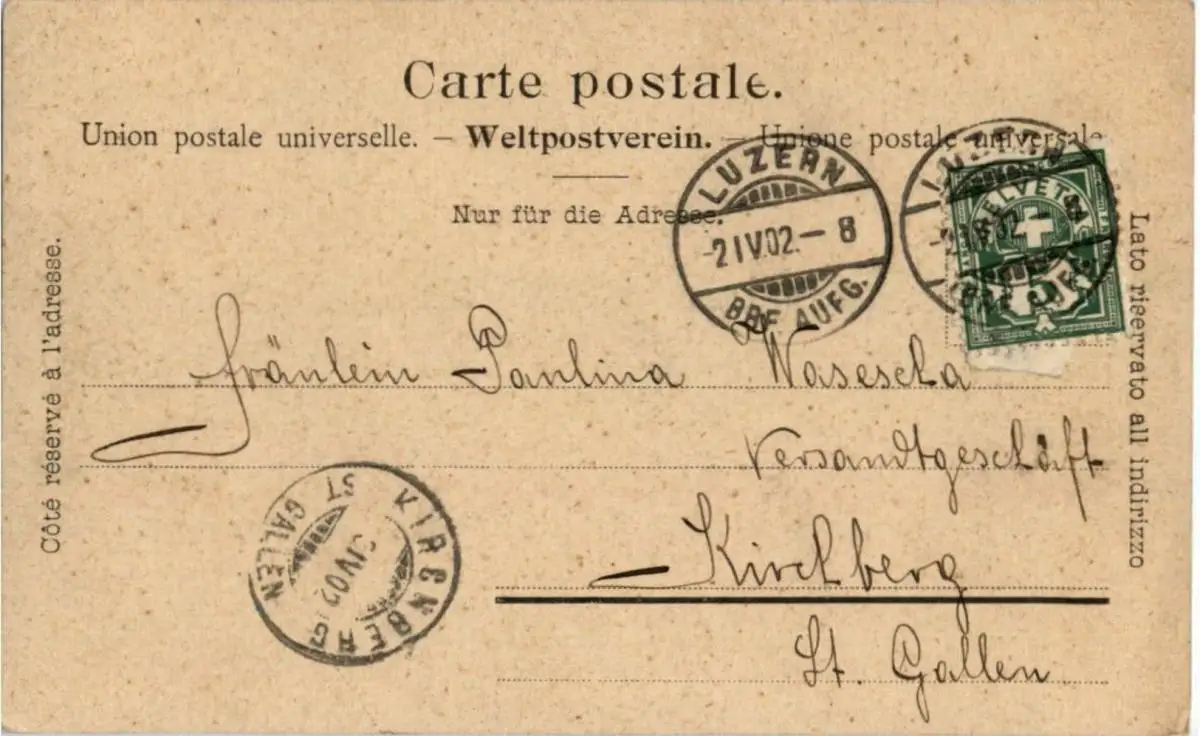 Carte postale.
Union postale universelle. — Weltpostverein. — Unione postale universale
Nur für die Adresse.
Côté réservé à l'adresse.
Lato riservato all indirizzo
LUZERN
-2 IV 02.- 8
BRF. AUFG.
LUZERN
HELVETIA
5
Fräulein Paulina
Versandtgeschäft
Kirchberg
St. Gallen
KIRCHBERG
ST. GALLEN
IV 02